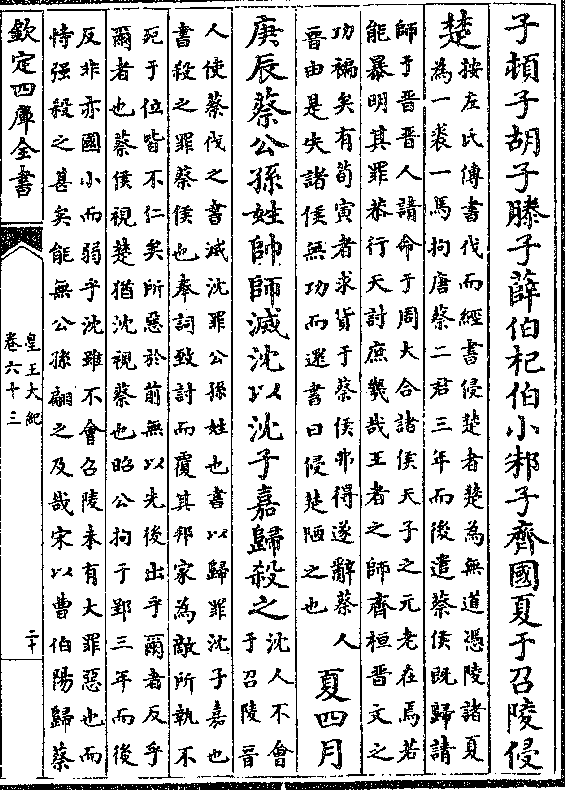 子頓子胡子滕子薛伯杞伯小邾子齊國夏于召陵侵
楚按左氏傳書伐而經書侵楚者楚為無道憑陵諸夏
為一裘一馬拘唐蔡二君三年而後遣蔡侯既歸請
師于晉晉人請命于周大合諸侯天子之元老在焉若
能暴明其罪恭行天討庶幾哉王者之師齊桓晉文之
功褊矣有荀寅者求貨于蔡侯弗得遂辭蔡人
晉由是失諸侯無功而還書曰侵楚陋之也
夏四月
庚辰蔡公孫姓帥師滅沈以沈子嘉歸殺之沈人不會
于召陵晉
人使蔡伐之書滅沈罪公孫姓也書以歸罪沈子嘉也
書殺之罪蔡侯也奉詞致討而覆其邦家為敵所執不
死于位皆不仁矣所惡於前無以先後出乎爾者反乎
爾者也蔡侯視楚猶沈視蔡也昭公拘于郢三年而後
反非亦國小而弱乎沈雖不會召陵未有大罪惡也而
恃强殺之甚矣能無公孫翩之及哉宋以曹伯陽歸蔡
欽定四庫全書
皇王大紀
卷六十三
二十